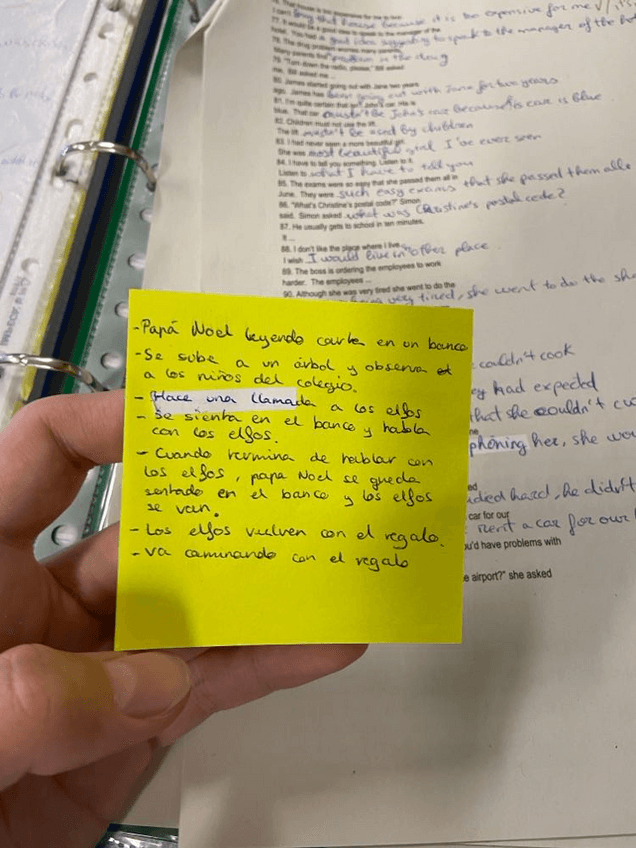 76. That house is too expensive for me to buy.
I can't buy that house because it is expensive for me
77. It would be a good idea to speak to the manager of the
hotel. You had a good idea suggesting to speak to the manager of the
78. The drug problem worries many parents.
Many parents find problem in the drug
79. "Turn down the radio, please," Bill asked
me. Bill asked me ...
80. James started going out with Jane two years
ago. James has been going out with Jane for two years
81. I'm quite certain that isn't John's car. His is
blue. That car mustn't be John's car because is car is blue
82. Children must not use the lift.
The lift mustn't be used by children
83. I had never seen a more beautiful girl.
She was most beautiful girl I'be ever seen
84. I have to tell you something. Listen to it.
Listen to what I have to tell you
85. The exams were so easy that she passed them all in
June. They were such easy exams that she passed them alle
86. "What's Christine's postal code?" Simon
said. Simon asked what was Christine's postal code?
87. He usually gets to school in ten minutes.
It ...
88. I don't like the place where I live.
I wish I would live in other place
89. The boss is ordering the employees to work
harder. The employees ...
90. Although she was very tired she went to do the
very tired, she went to do the
couldn't cook
had expected
that she couldn't
phoning her, she
hard, he didn't
car for our
Rent a car for our
you'd have problems with
airport?" she asked
-Papá Noel leyendo carta en un banco
-Se sube a un árbol y observa
a los niños del colegio.
- Hace una llamada a los elfos
- Se sienta en el banco y habla
con los elfos.
- Cuando termina de hablar con
los elfos, papa Noel se queda
sentado en el banco y los elfos
se van.
- Los elfos vulven con el regalo.
- Va caminando con el regalo